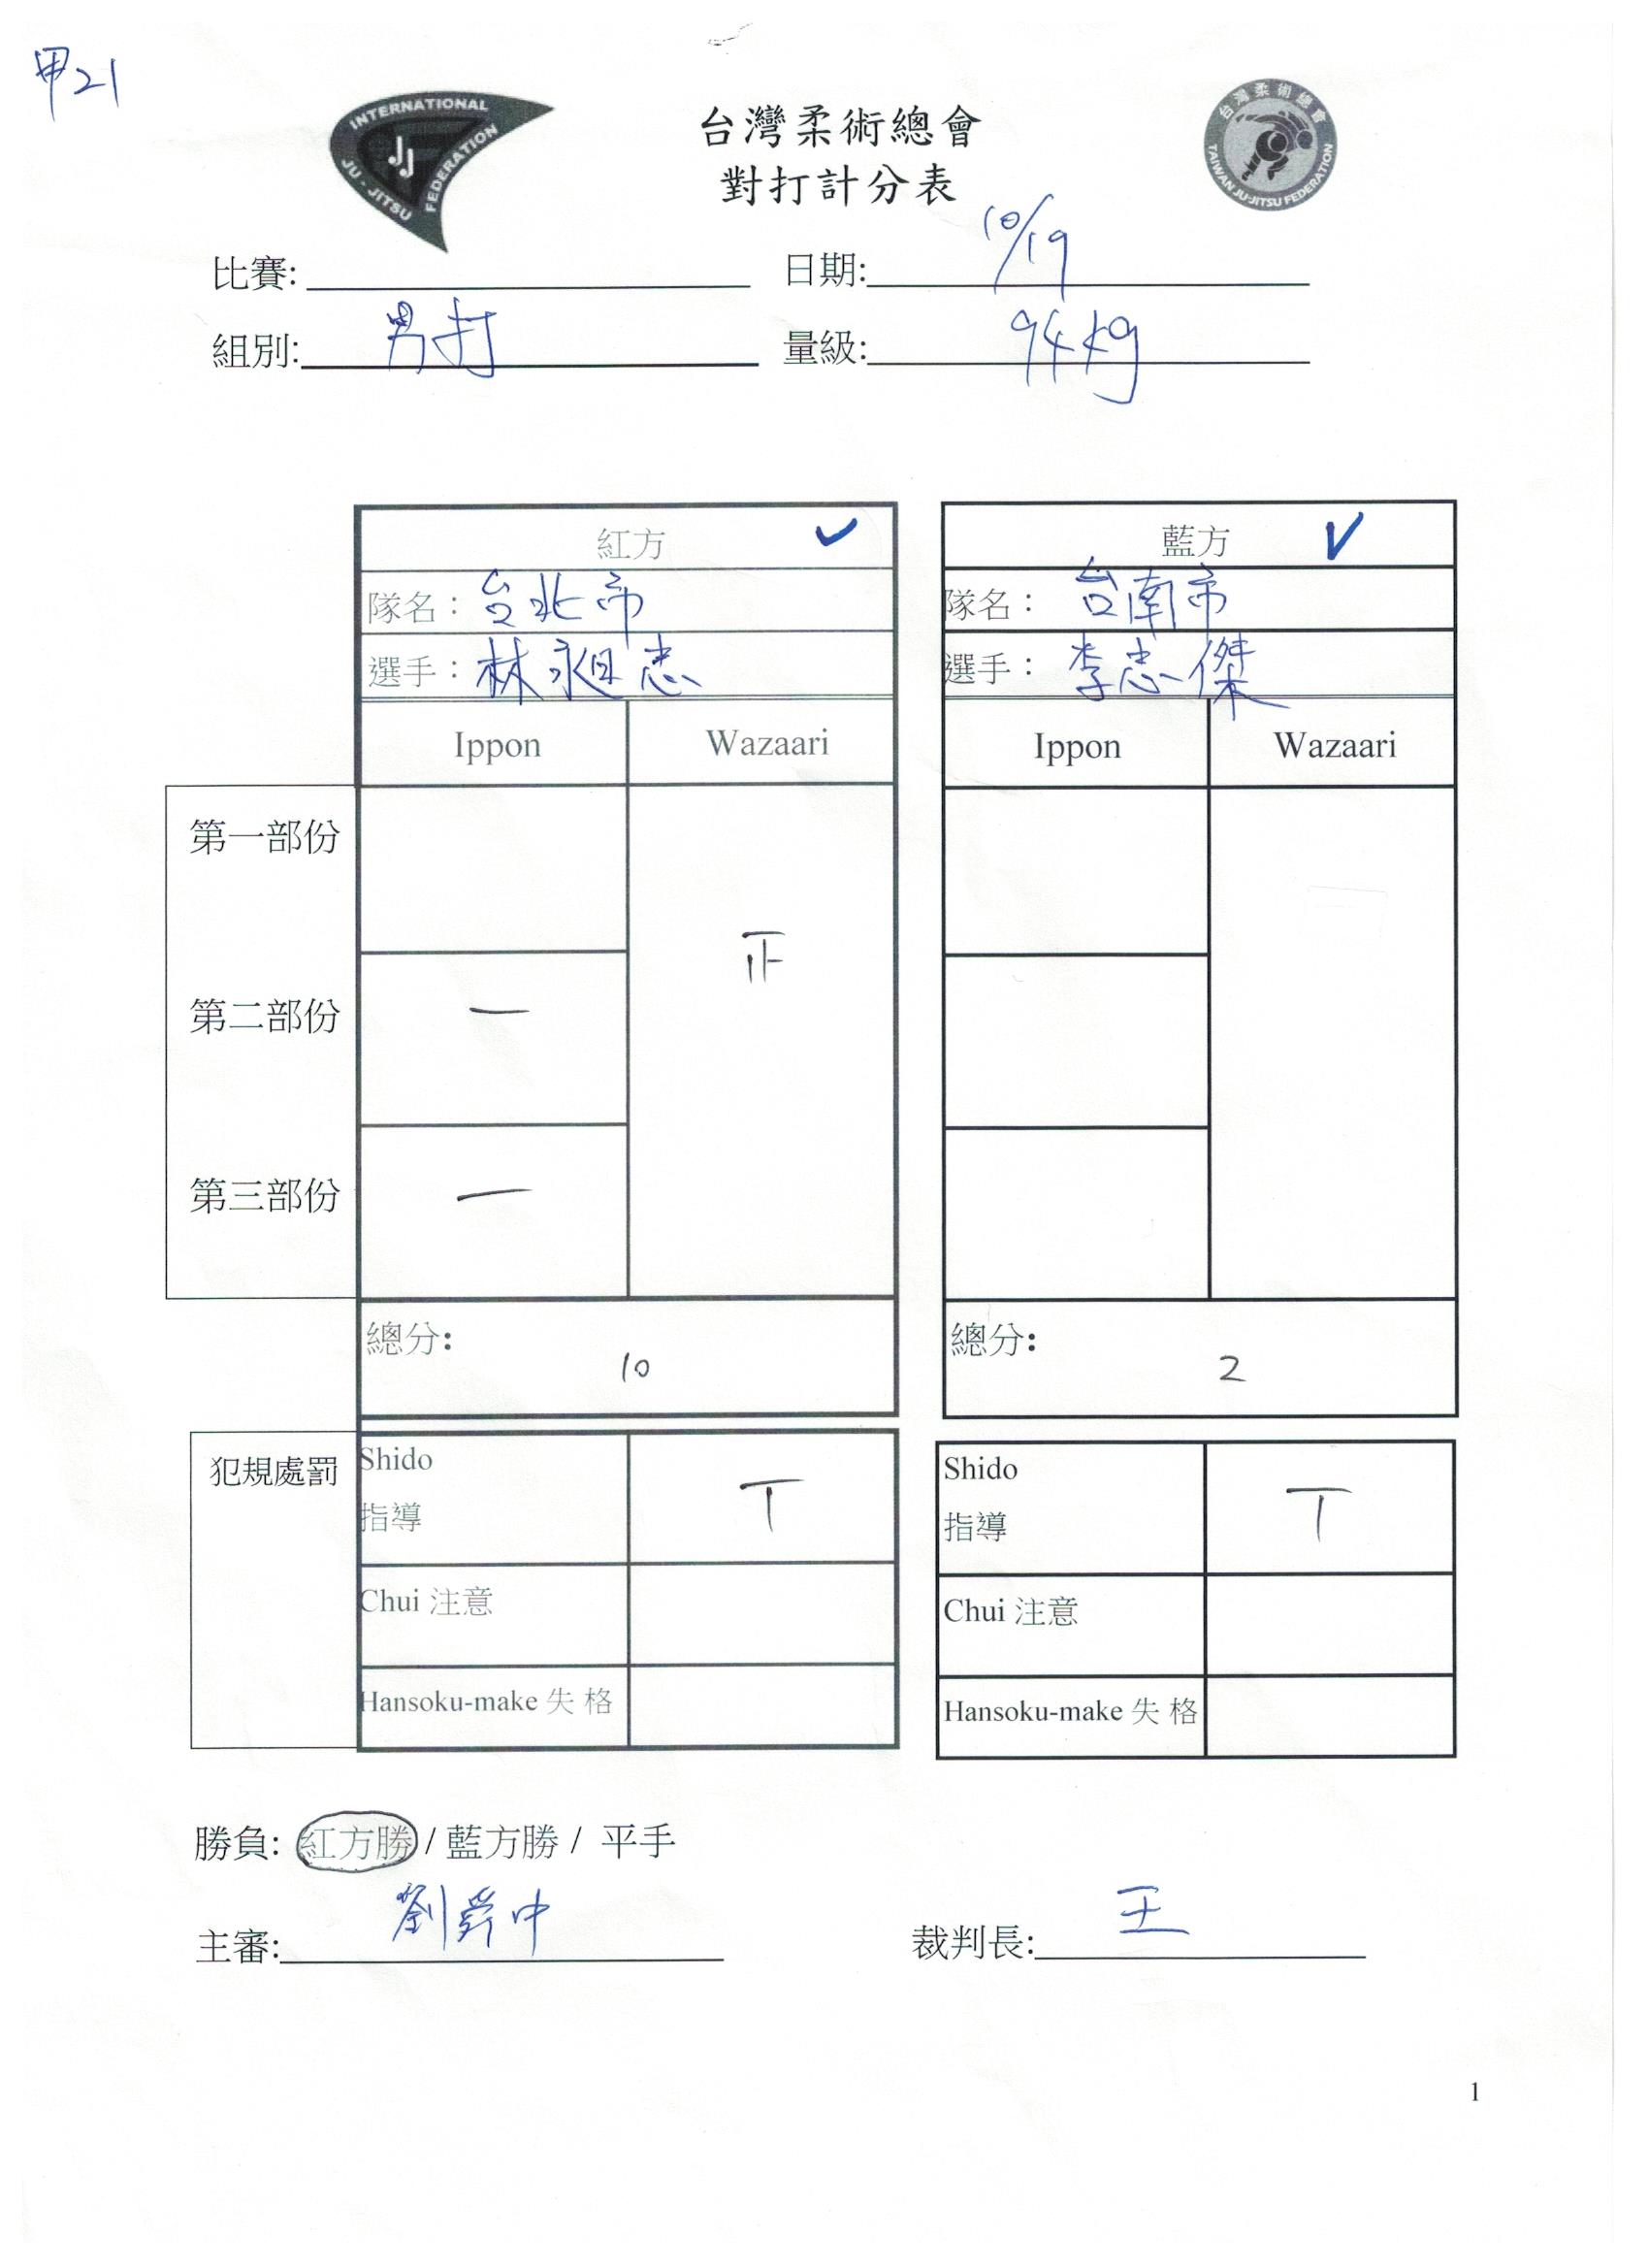 甲21
INTERNATIONAL
JJ
JU-JITSU FEDERATION
台灣柔術總會
對打計分表
台灣柔術總會
TAIWAN JU-JITSU FEDERATION
比賽: 日期: 10/19
組別: 男打 量級: 94kg
紅方 ✓ 藍方 V
隊名：台北市 隊名：台南市
選手：林 忠 選手：李忠傑
Ippon Wazaari Ippon Wazaari
第一部份
第二部份 一
第三部份 一
總分: 10 總分: 2
犯規處罰 Shido 指導 丅 Shido 指導 丅
Chui 注意 Chui 注意
Hansoku-make 失 格 Hansoku-make 失 格
勝負: 紅方勝 / 藍方勝 / 平手
主審: 劉舜中 裁判長: 王
1